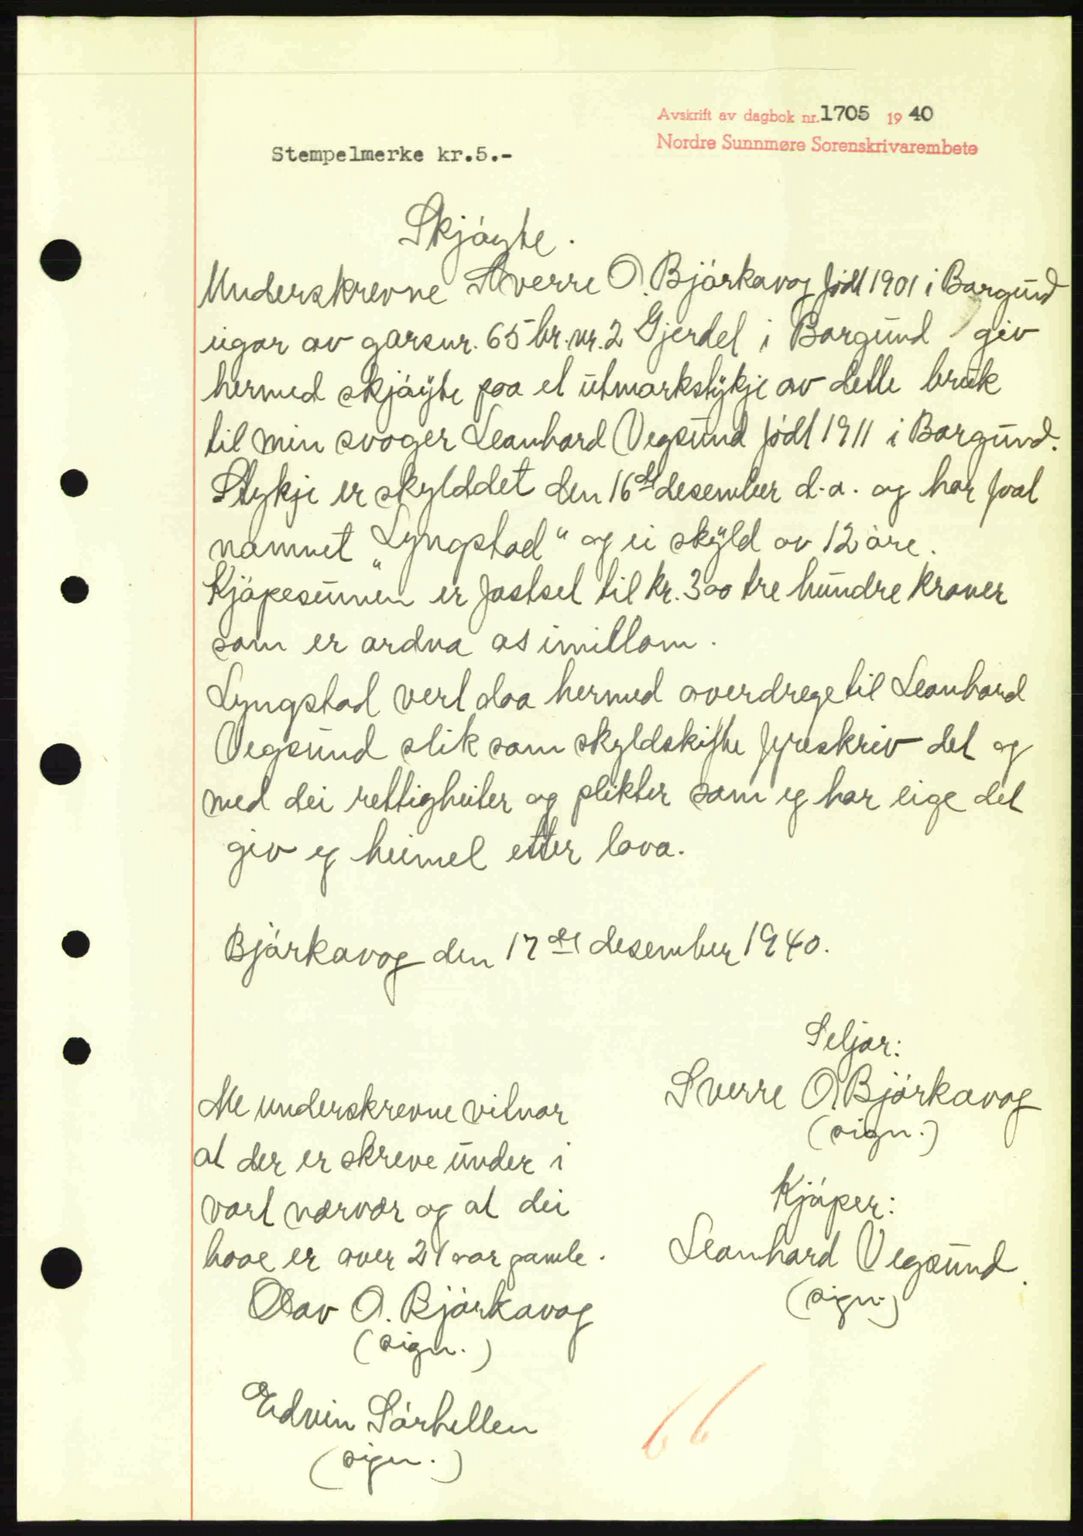 Avskrift av dagbok nr. 1705 19 40
Nordre Sunnmøre Sorenskrivarembete
Stempelmerke kr.5.-
Skjóyte.
Underskrevne Sverre O. Bjórkavog født 1901 i Borgund
eigar av garsnr. 65 br.nr. 2 Gjerdel i Borgund giv
hermed skjóyte paa et utmarkstykje av dette bruk
til min svoger Leonhard Vegsund født 1911 i Borgund.
Stykje er skylddet den 16de desember d.a. og har faat
namnet "Lyngstad" og ei skyld av 12 øre.
Kjópesumen er fastset til kr. 300 tre hundre kroner
som er ordna os imillom.
Lyngstad vert daa hermed overdrege til Leonhard
Vegsund slik som skyldskifte fyreskriv det og
med dei rettigheiter og plikter som eg har eige det
giv eg heimel etter lova.
Bjórkavog den 17de desember 1940.
Seljar:
Sverre O. Bjórkavog
(sign.)
Kjóper:
Leonhard Vegsund.
(sign.)
Me underskrevne vitnar
at der er skreve under i
vort nærvær og at dei
booe er over 21 aar gamle.
Olav O. Bjórkavog
(sign.)
Edvin Sórhellen
(sign.)
66